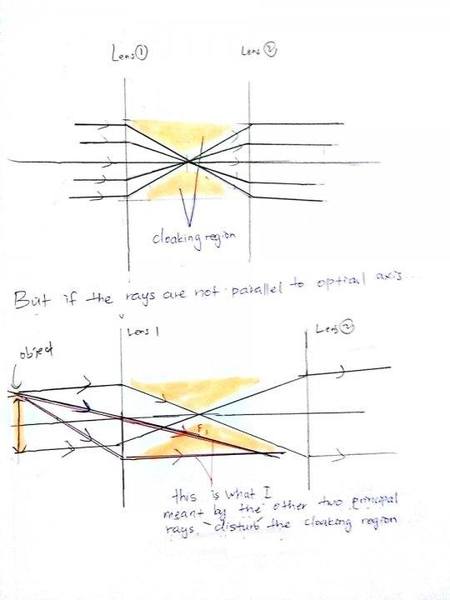 Lens ① Lens ②
cloaking region
But if the rays are not parallel to optical axis...
Lens 1 Lens ②
object
F₁
this is what I
meant by the other two principal
rays, disturb the cloaking region